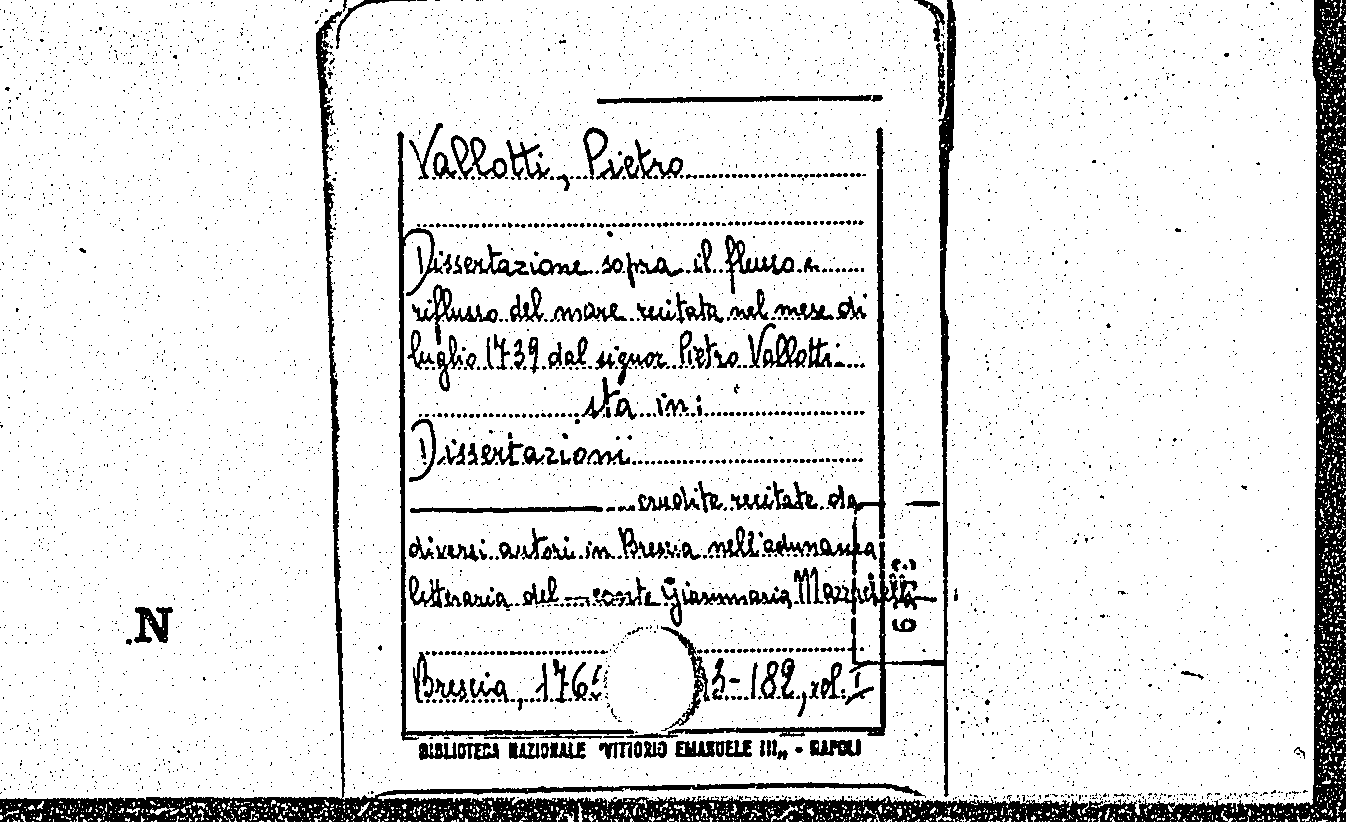 Vallotti, Pietro
Dissertazione sopra il flusso e
riflusso del mare recitata nel mese di
luglio 1739 dal signor Pietro Vallotti
sta in:
Dissertazioni
erudite recitate da
diversi autori in Brescia nell'adunanza
letteraria del conte Giammaria Mazzuchelli
N
Brescia, 176 3-182, vol. I
BIBLIOTECA NAZIONALE "VITTORIO EMANUELE III„ - NAPOLI